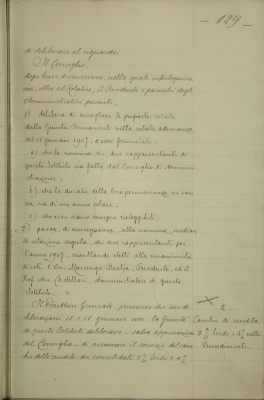 - 129 -
di deliberare al riguardo.
Il Consiglio,
dopo breve discussione, nella quale interloquiscono, oltre al Relatore, il Presidente e parecchi degli
Amministratori presenti,
1) delibera di accogliere le proposte votate
dalla Giunta Permanente nella citata adunanza
del 15 gennaio 1907, e così formulate:
a) che la nomina dei due rappresentanti di
questo Istituto sia fatta dal Consiglio di Amministrazione;
b) che la durata della loro permanenza in carica sia di un anno solare;
c) che essi siano sempre rieleggibili;
2) passa, di conseguenza, alla nomina, mediante
votazione segreta, dei due rappresentanti per
l'anno 1907, risultando eletti alla unanimità
di voti l'On. Marsengo Bastia, Presidente, ed il
Prof. Avv. Castellari, Amministratore di questo
Istituto.
Il Direttore Generale, premesso che con deliberazioni 15 e 18 gennaio corr. la Giunta
di questo Istituto deliberava - salva approvazione
del Consiglio - di accennare il
cambio delle rendite dei consolidati 5% lordo e 4%
Cambio di rendita
5% lordo e 4% netto
Provvedimenti.